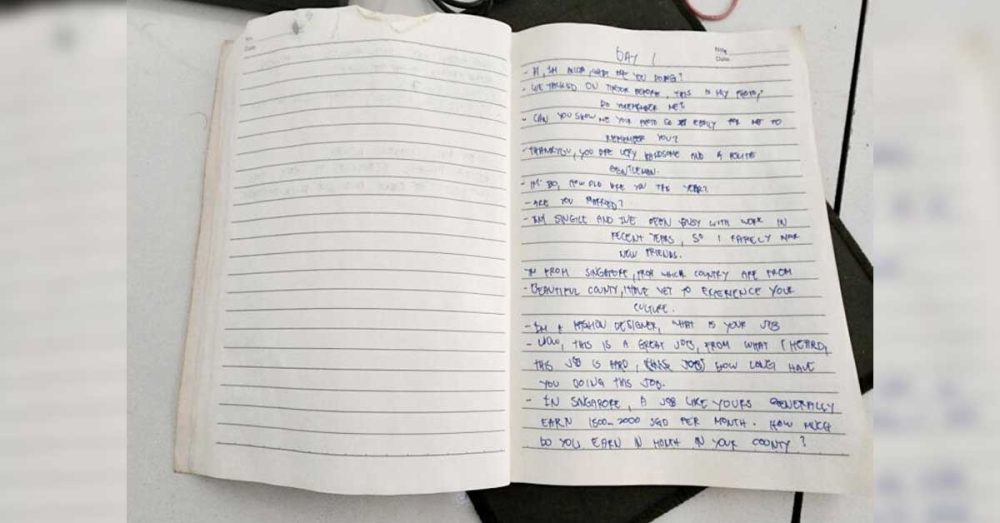 No.
Date
DAY 1
No.
Date
- HI, I'M , WHAT ARE YOU DOING?
- WE TALKED ON TIKTOK BEFORE, THIS IS MY PHOTO,
DO YOU REMEMBER ME?
- CAN YOU SHOW ME YOUR PHOTO SO IT EASILY FOR ME TO
REMEMBER YOU?
- THANKYOU, YOU ARE VERY HANDSOME AND A POLITE
GENTLEMAN.
- I'M 30, HOW OLD ARE YOU THIS YEAR?
- ARE YOU MARRIED?
- I'M SINGLE AND I'VE BEEN BUSY WITH WORK IN
RECENT YEARS, SO I RARELY
NEW FRIENDS.
- I'M FROM SINGAPORE, FROM WHICH COUNTRY ARE FROM
- BEAUTIFUL COUNTY, I HAVE YET TO EXPERIENCE YOUR
CULTURE.
- I'M A FASHION DESIGNER, WHAT IS YOUR JOB
- WOW, THIS IS A GREAT JOB, FROM WHAT I HEARD,
THIS JOB IS HARD, JOB) HOW LONG HAVE
YOU DOING THIS JOB.
- IN SINGAPORE, A JOB LIKE YOURS GENERALLY
EARN 1500-2000 SGD PER MONTH. HOW MUCH
DO YOU EARN IN MONTH IN YOUR COUNTY?